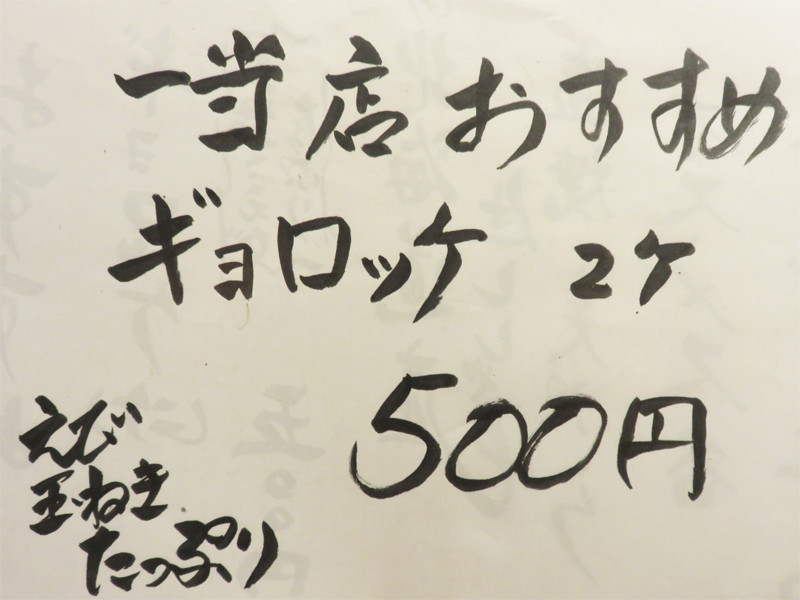 一当店おすすめ
ギョロッケ 2ケ
500円
えび
玉ねぎ
たっぷり